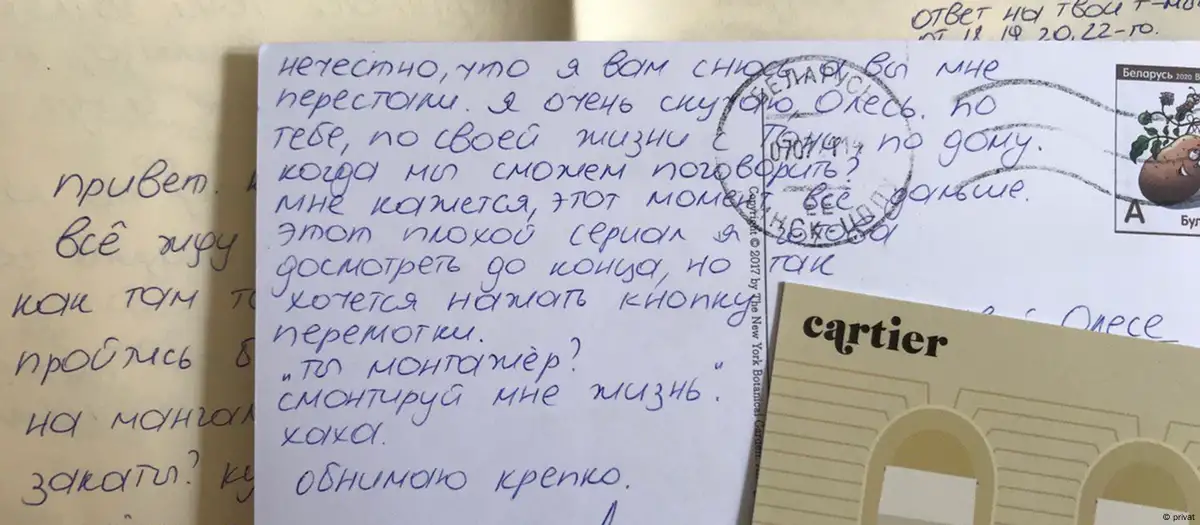 ответ на твой
от 18, 19, 20, 22-го.
нечестно, что я вам снюсь, а вы мне
перестали. я очень скучаю, Олесь. по
тебе, по своей жизни с по дому.
когда мы сможем поговорить?
мне кажется, этот момент всё дальше.
этот плохой сериал я готова
досмотреть до конца, но так
хочется нажать кнопку
перемотки.
„ты монтажёр?
смонтируй мне жизнь“.
хаха.
обнимаю крепко.
привет.
всё жду
как там
пройтись
на
закаты?
БЕЛАРУСЬ
0707
МИНСК
Беларусь 2020
A
Copyright © 2017 by The New York Botanical
Олесе
cartier
© privat